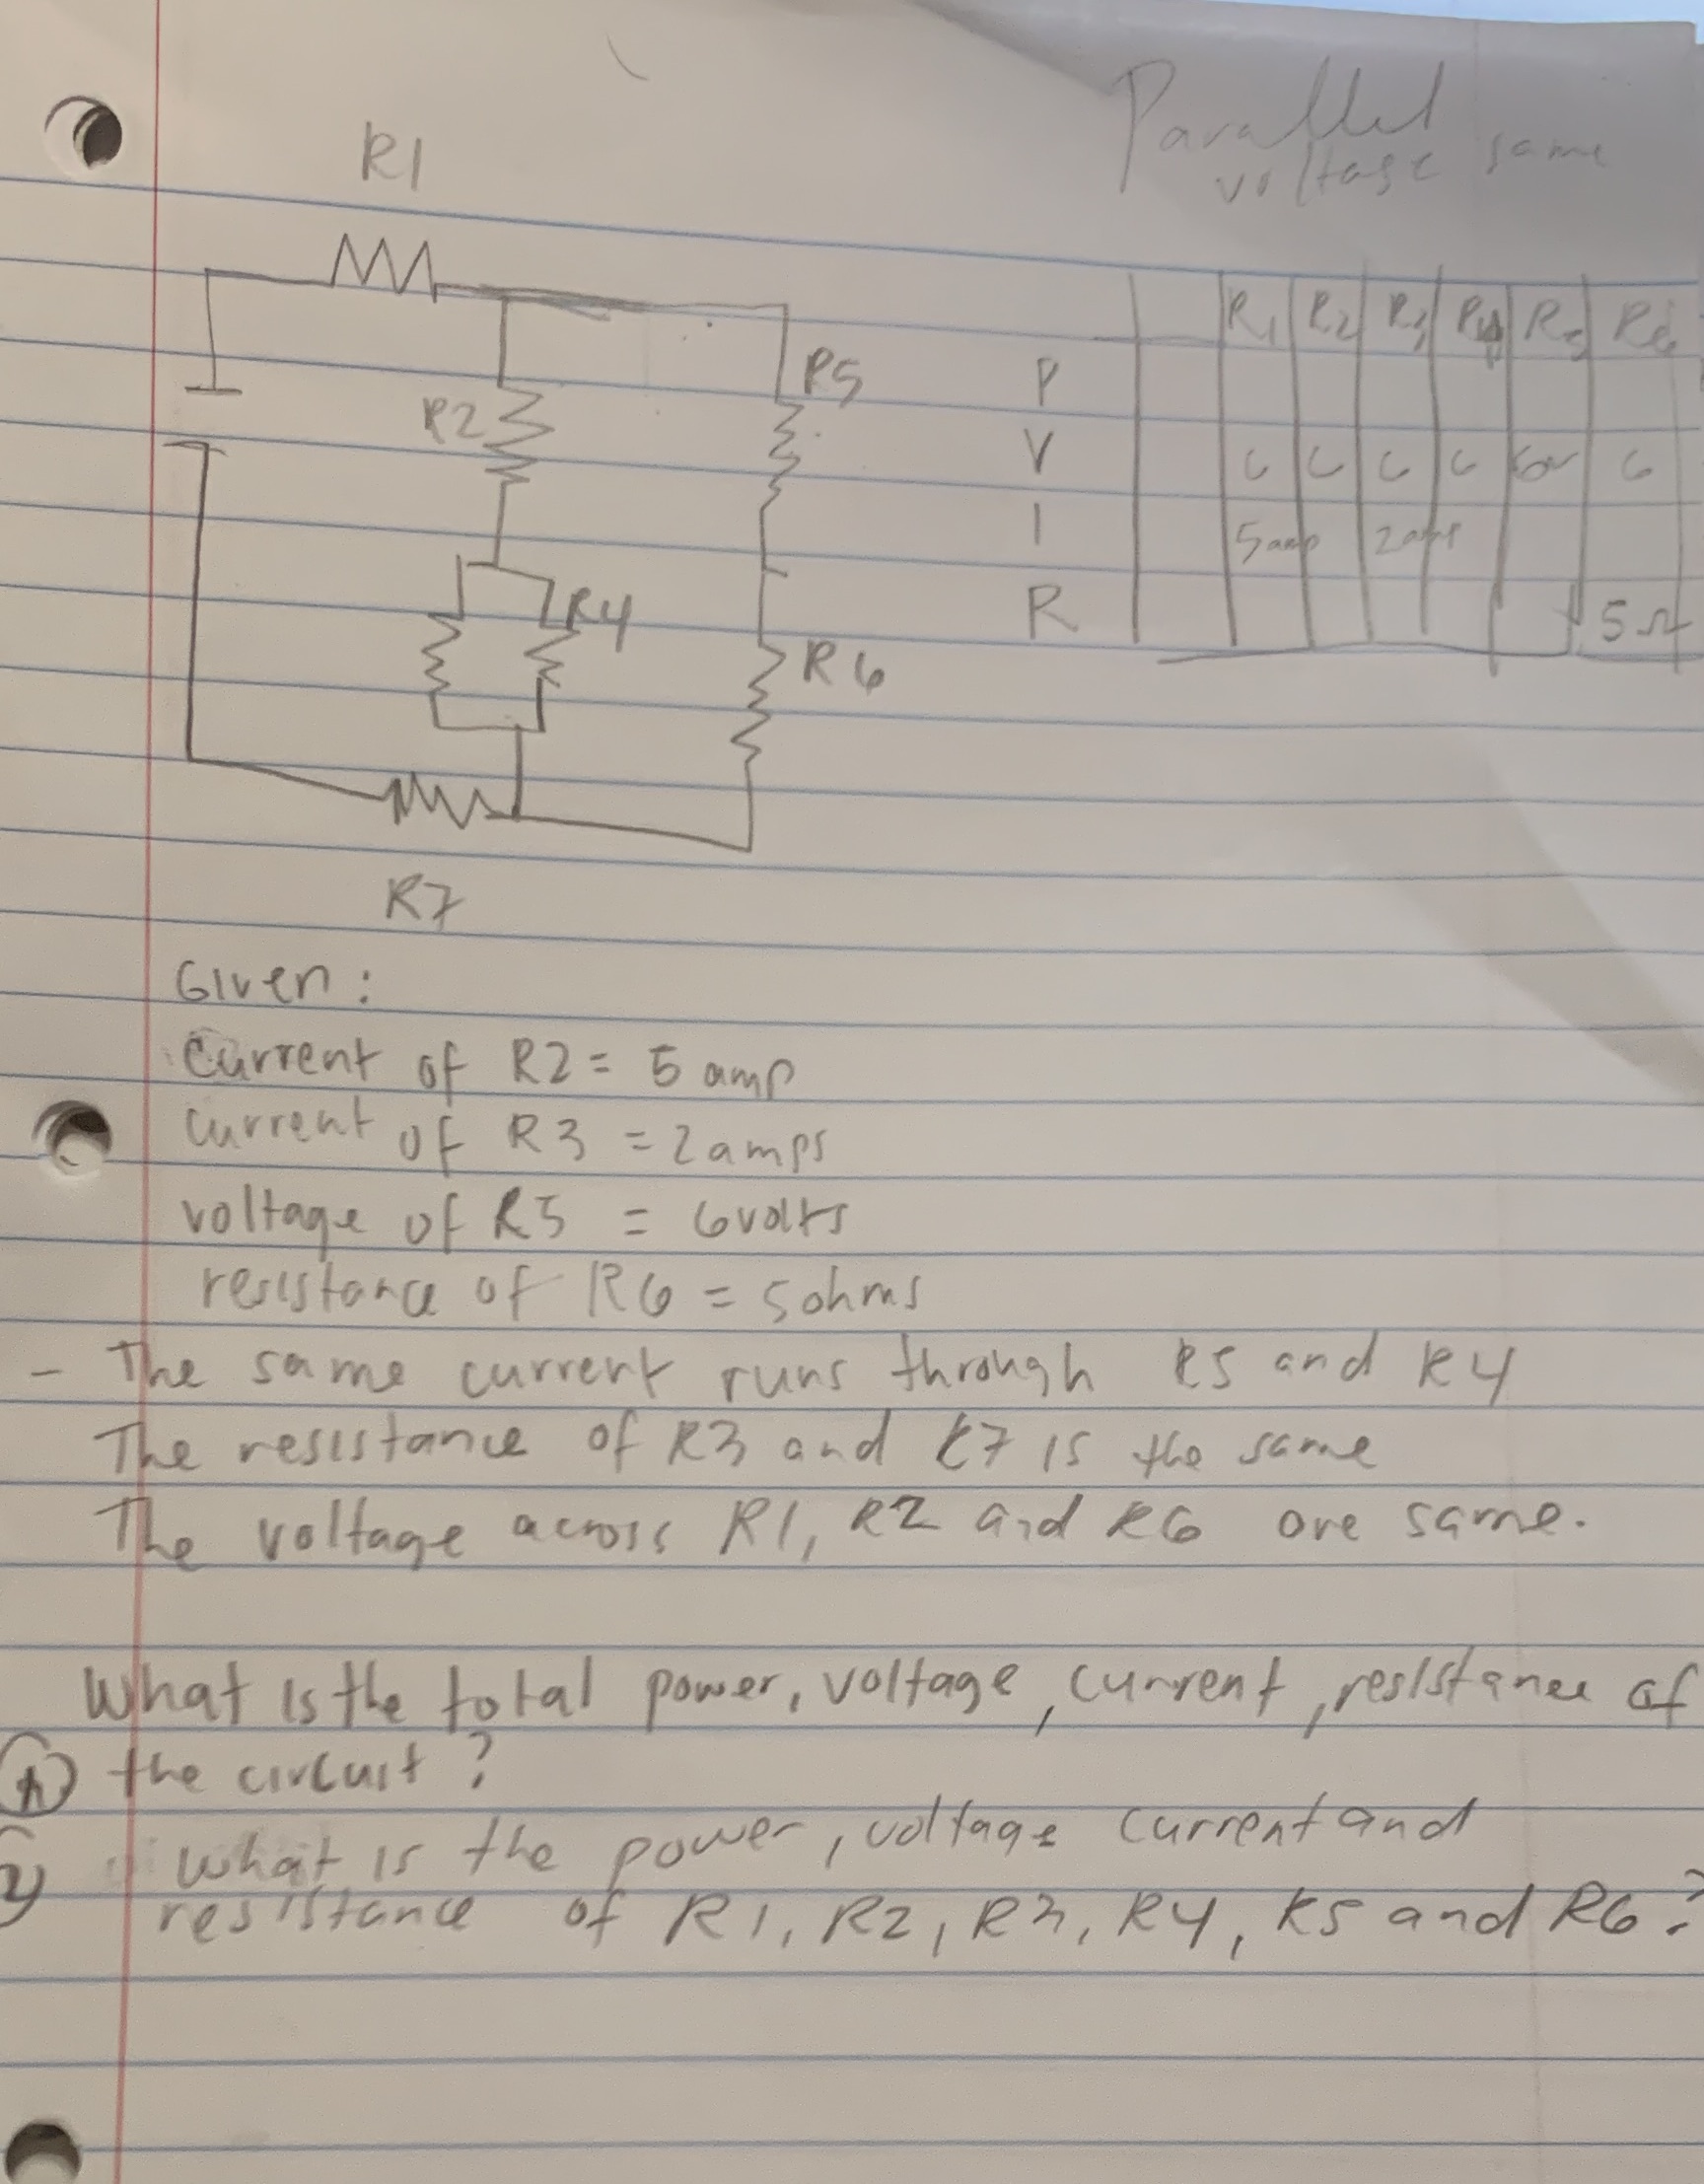 Parallel
voltage same
R1
R2
R5
R4
R6
R7
R1 R2 R3 R4 R5 R6
P
V 6 6 6 6 6v 6
I 5amp 2amp
R 5Ω
Given:
Current of R2 = 5 amp
current of R3 = 2amps
voltage of R5 = 6volts
resistance of R6 = 5ohms
- The same current runs through R5 and R4
The resistance of R3 and R7 is the same
The voltage across R1, R2 and R6 are same.
What is the total power, voltage, current, resistance of
① the circuit?
2) What is the power, voltage current and
resistance of R1, R2, R3, R4, R5 and R6?